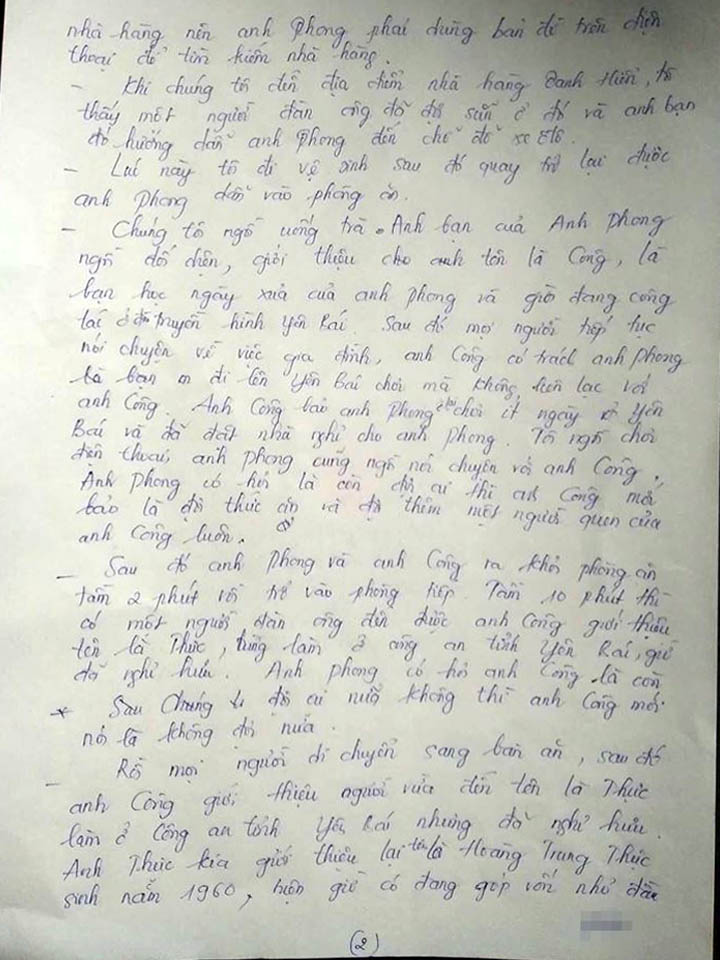 nhà hàng nên anh Phong phải dùng bản đồ trên điện
thoại để tìm kiếm nhà hàng.
- Khi chúng tôi đến địa điểm nhà hàng Oanh Hiền, tôi
thấy một người đàn ông đã đợi sẵn ở đó và anh bạn
đó hướng dẫn anh Phong đến chỗ để xe ôtô.
- Lúc này tôi đi vệ sinh sau đó quay trở lại được
anh Phong dẫn vào phòng ăn.
- Chúng tôi ngồi uống trà. Anh bạn của Anh Phong
ngồi đối diện, giới thiệu cho anh tên là Công, là
bạn học ngày xưa của anh Phong và giờ đang công
tác ở đài truyền hình Yên Bái. Sau đó mọi người tiếp tục
nói chuyện về việc gia đình, anh Công có trách anh Phong
là bạn đi lên Yên Bái chơi mà không liên lạc với
anh Công. Anh Công bảo anh Phong ở lại chơi ít ngày ở Yên
Bái và đã đặt nhà nghỉ cho anh Phong. Tôi ngồi chơi
điện thoại, anh Phong cũng ngồi nói chuyện với anh Công.
Anh Phong có hỏi là còn đợi ai thì anh Công mới
bảo là đợi thức ăn và đợi thêm một người quen của
anh Công luôn.
- Sau đó anh Phong và anh Công ra khỏi phòng ăn
tầm 2 phút rồi trở vào phòng tiếp. Tầm 10 phút thì
có một người đàn ông đến được anh Công giới thiệu
tên là Thức, từng làm ở công an tỉnh Yên Bái, giờ
đã nghỉ hưu. Anh Phong có hỏi anh Công là còn
* Sau chúng đợi ai nữa không thì anh Công mới
nói là không đợi nữa.
- Rồi mọi người di chuyển sang bàn ăn, sau đó
anh Công giới thiệu người vừa đến tên là Thực
làm ở Công an tỉnh Yên Bái nhưng đã nghỉ hưu.
Anh Thực kia giới thiệu lại tên là Hoàng Trung Thực
sinh năm 1960, hiện giờ có đang góp vốn nhỏ đầu
(2)